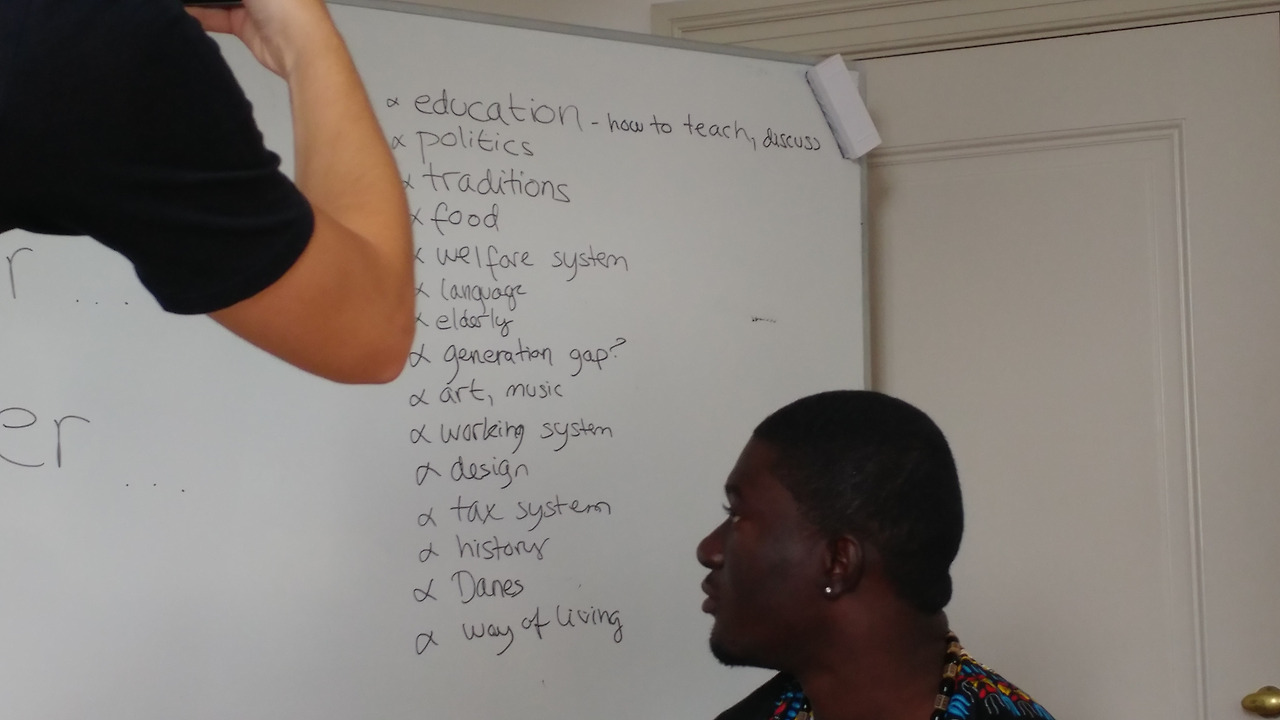 ∝ education - how to teach, discuss
∝ politics
∝ traditions
∝ food
∝ welfare system
∝ language
∝ elderly
∝ generation gap?
∝ art, music
∝ working system
∝ design
∝ tax system
∝ history
∝ Danes
∝ way of living
r ...
er ...